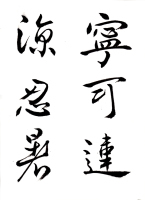 寧可速
涼忍暑